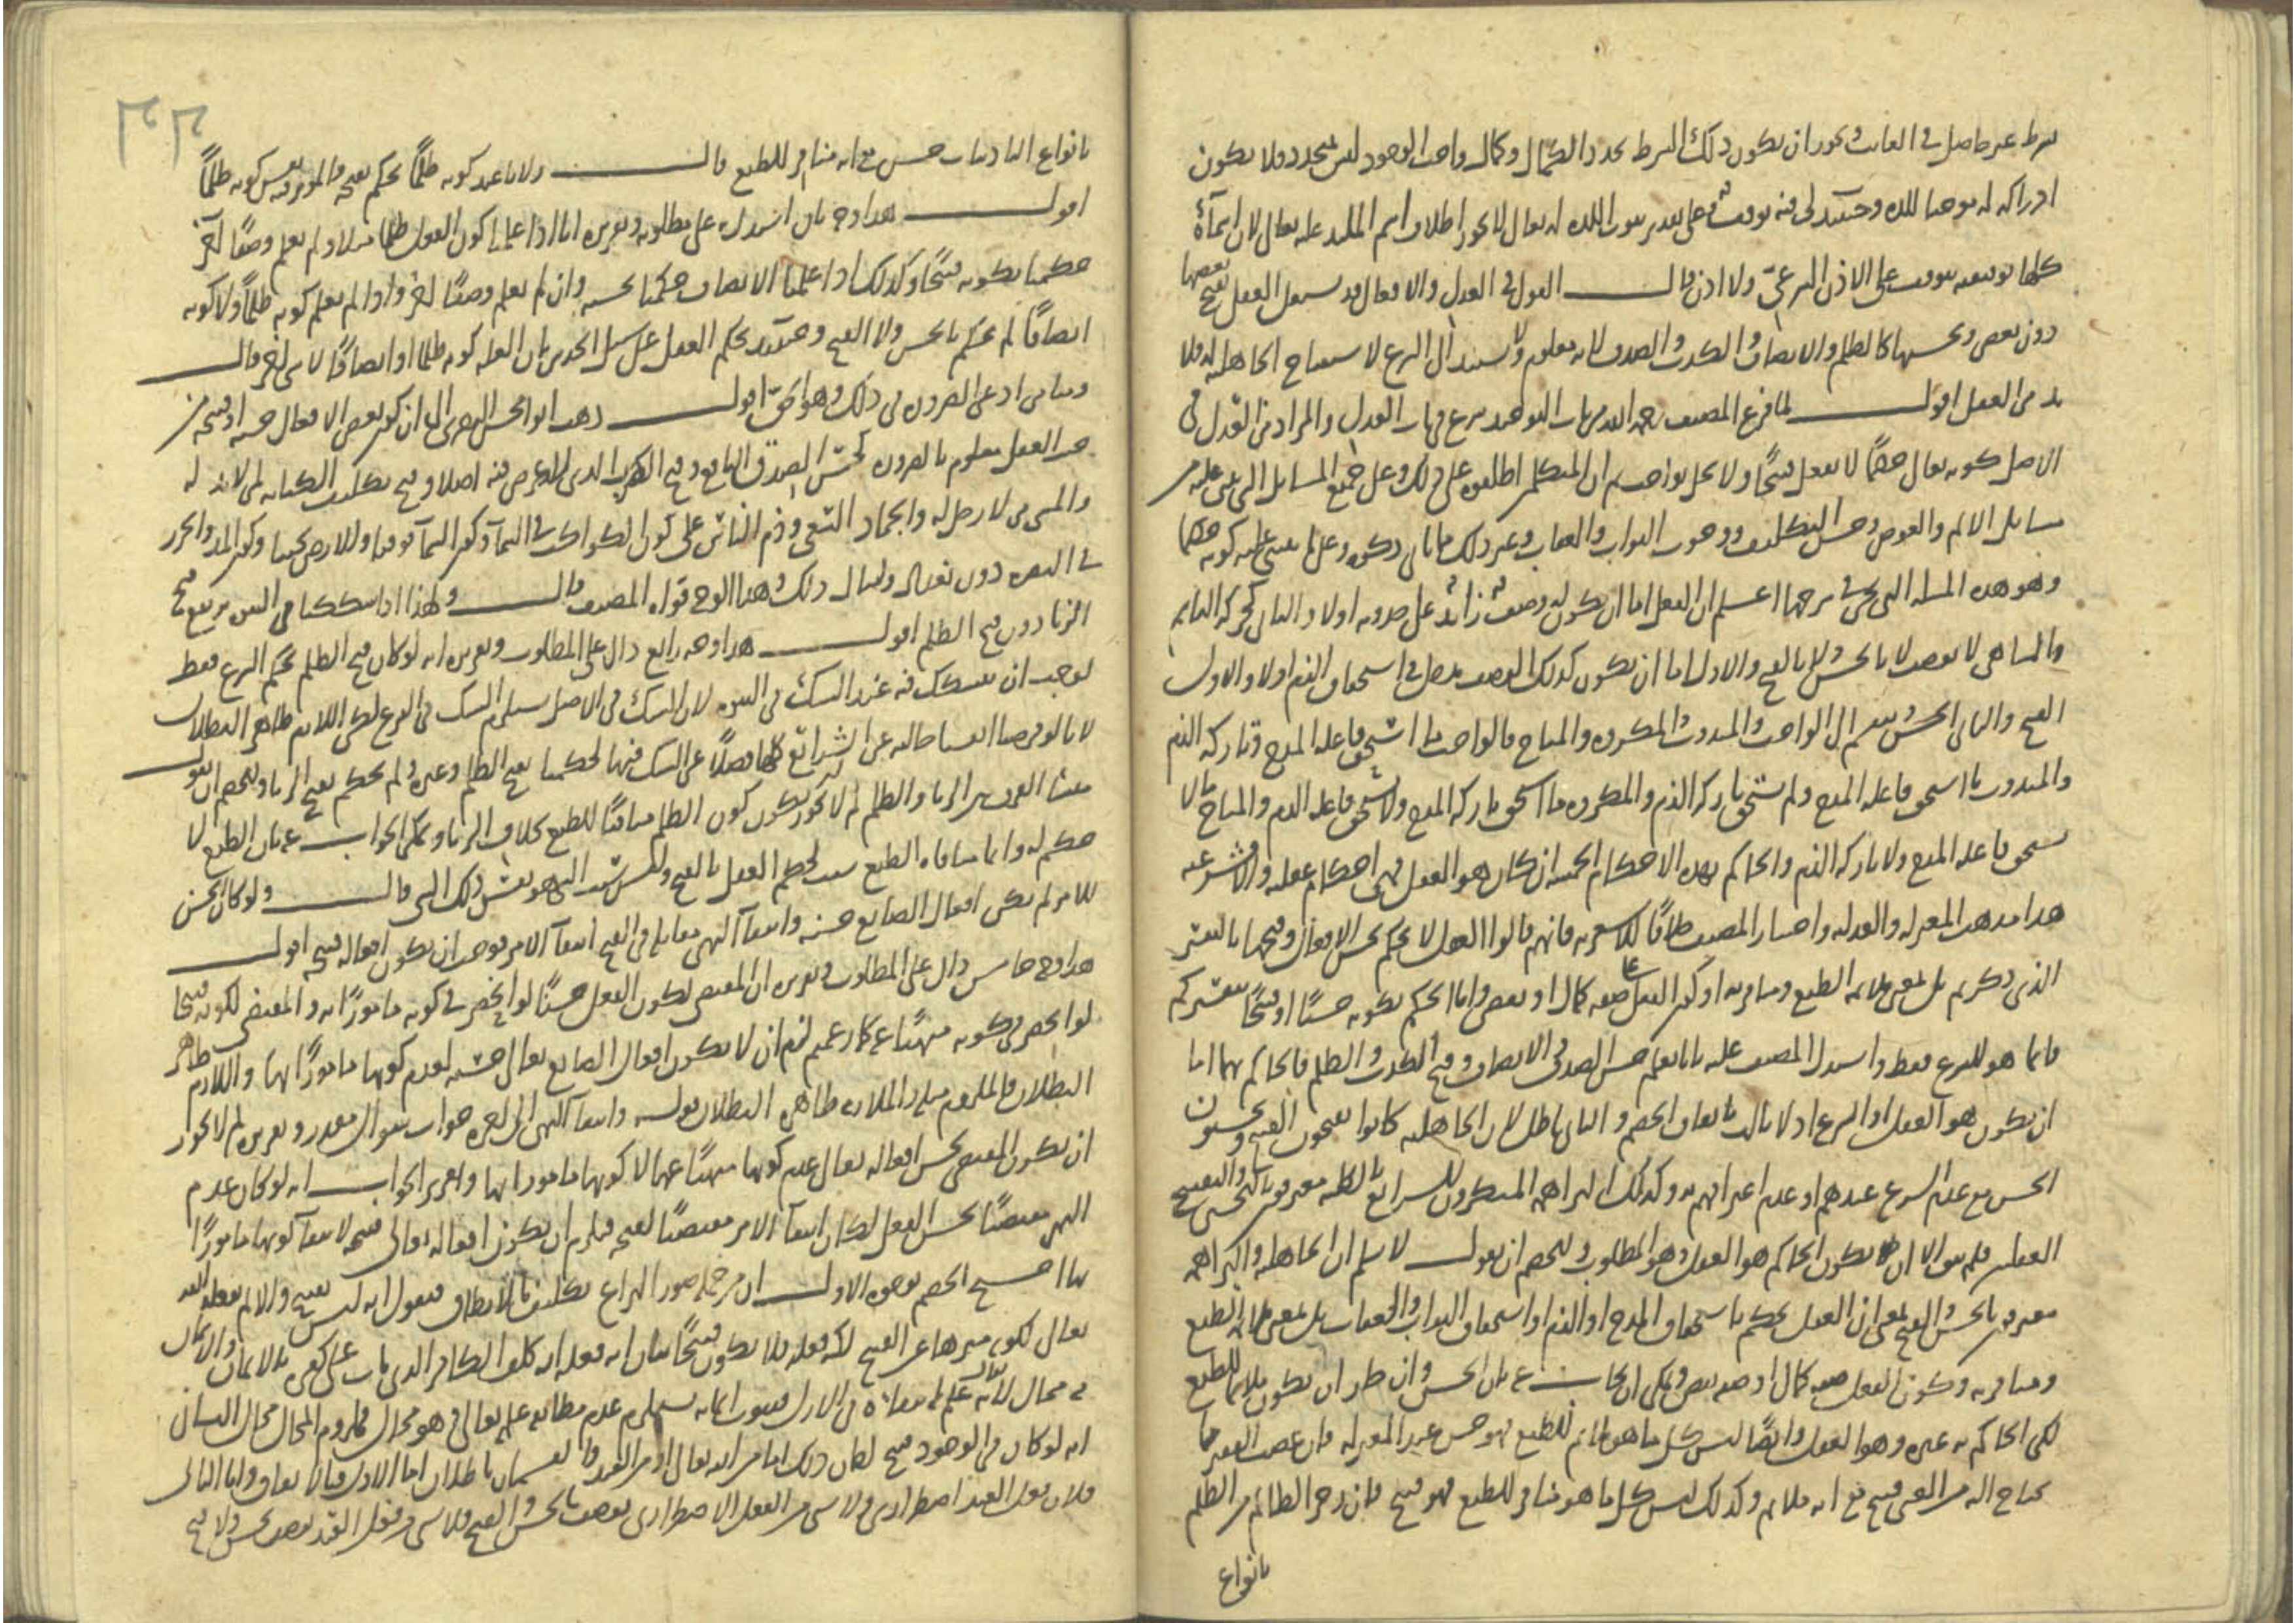 شرط غير حاصل في الغائب ويجوز ان يكون ذلك الشرط تجدد الكمال وكمال واجب الوجود ليس بتجدد فلا يكون
ادراكه له موجبا للذة وحينئذ على تقدير ثبوت اللذة له تعالى لا يجوز اطلاق اسم الملتذ عليه تعالى لان اسمآءه
كلها توقيفية يتوقف على الاذن الشرعي ولا اذن قال القول في العدل والافعال قد يستقل العقل بقبح بعضها
دون بعض وبحسنها كالظلم والانصاف والكذب والصدق لانه معلوم ولا يستند الى الشرع لاستقباح الجاهلية له فلا
بد من العقل اقول لما فرغ المصنف رحمه الله من باب التوحيد شرع في باب العدل والمراد من العدل في
الاصل كونه تعالى حكيما لا يفعل قبيحًا ولا يخل بواجب ثم ان المتكلمين اطلقوه على ذلك وعلى جميع المسائل التي يبتنى عليه من
مسائل الالام والعوض وحسن التكليف ووجوب الثواب والعقاب وغير ذلك مما ياتي ذكره وعلى ما يبتنى عليه كونه حكيما
وهو هذه المسئلة التي نحن في شرحها اعلم ان الفعل اما ان يكون له وصف زائد على حدوثه اولا والثاني كحركة النائم
والساهي لا يوصف لا بالحسن ولا بالقبح والاول اما ان يكون لذلك الوصف مدخل في استحقاق الذم اولا والاول
القبيح والثاني الحسن وينقسم الى الواجب والمندوب والمكروه والمباح فالواجب ما استحق فاعله المدح وتاركه الذم
والمندوب ما استحق فاعله المدح ولم يستحق تاركه الذم والمكروه ما استحق تاركه المدح ولا يستحق فاعله الذم والمباح ما لا
يستحق فاعله المدح ولا تاركه الذم والحاكم بهذه الاحكام الخمسة ان كان هو العقل فهي احكام عقلية والا فشرعية
هذا مذهب المعتزلة والعدلية واختيار المصنف خلافًا للاشعرية فانهم قالوا العقل لا يحكم بحسن الافعال وقبحها بالتفسير
الذي ذكرتم بل بمعنى ملائمة الطبع ومنافرته او كون الفعل على صفة كمال او نقص واما الحكم بكونه حسنًا او قبيحًا بتفسيركم
فانما هو للشرع فقط واستدل المصنف عليه بانا نعلم حسن الصدق والانصاف وقبح الكذب والظلم فالحاكم بهما اما
ان يكون هو العقل او الشرع اذ لا ثالث باتفاق الخصم والثاني باطل لان الجاهلية كانوا يقبحون القبيح ويحسنون
الحسن مع عدم الشرع عندهم او عدم اعترافهم به وكذلك البراهمة المنكرون للشرائع بالكلية معترفون بالتحسين والتقبيح
العقليين فلم يبق الا ان يكون الحاكم هو العقل وهو المطلوب وللخصم ان يقول لا نسلم ان الجاهلية والبراهمة
معترفون بالحسن والقبح بمعنى ان العقل يحكم باستحقاق المدح او الذم او استحقاق الثواب والعقاب بل بمعنى ملائمة الطبع
ومنافرته وكون الفعل صفة كمال او صفة نقص ويمكن ان يجاب عنه بان الحسن وان ظن ان يكون ملائما للطبع
لكن الحاكم به غيره وهو العقل وايضًا ليس كل ما هو ملائم للطبع فهو حسن عند المعتزلة فان غصب الفقير ما
يحتاج اليه من الغني قبيح مع انه ملائم وكذلك ليس كل ما هو منافر للطبع فهو قبيح فان زجر الظالم من الظلم
بانواع
بانواع التاديبات حسن مع انه منافر للطبع قال ولانا عند كونه ظلمًا نحكم بقبحه فالمؤثر فيه ليس كونه ظلمًا
اقول هذا وجه ثان استدل به على مطلوبه وتقريره انا اذا علمنا كون الفعل ظلما مثلا ولم نعلم وصفًا آخر
حكمنا بكونه قبيحًا وكذلك اذا علمنا الانصاف حكمنا بحسنه وان لم نعلم وصفًا اخر واذا لم نعلم كونه ظلمًا ولا كونه
انصافًا لم نحكم بالحسن ولا القبح وحينئذ يحكم العقل على سبيل الحدس بان العلة كونه ظلما او انصافًا لا شيء اخر قال
ومنا من ادعى الضرورة في ذلك وهو الحق اقول ذهب ابو الحسين البصري الى ان كون بعض الافعال حسنة او قبيحة من
حيث العقل معلوم بالضرورة كحسن الصدق النافع وقبح الكذب الذي لا غرض فيه اصلا وقبح تكليف الكتابة لمن لا يد له
والمشي من لا رجل له والجماد السعي وذم الناس على كون الكواكب في السمآء وكون السمآء فوقنا والارض تحتنا وكون المد والجزر
في البصرة دون بغداد وامثال ذلك وهذا الوجه قواه المصنف قال ولهذا اذا شككنا في النبي يرتفع قبح
الزنا دون قبح الظلم اقول هذا وجه رابع دال على المطلوب وتقريره انه لو كان قبح الظلم بحكم الشرع فقط
لوجب ان نشكك فيه عند الشك في النبوة لان الشك في الاصل يستلزم الشك في الفرع لكن اللازم ظاهر البطلان
لانا لو فرضنا انفسنا خالية عن الشرائع كلها فضلاً عن الشك فيها لحكمنا بقبح الظلم وغيره ولم نحكم بقبح الزنا وللخصم ان يقول
منشأ الفرق بين الزنا والظلم لم لا يجوز ان يكون كون الظلم منافيًا للطبع بخلاف الزنا ويمكن الجواب عنه بان الطبع لا
حكم له وانما منافاة الطبع سبب لحكم العقل بالقبح وليس سبب الشيء هو نفس ذلك الشيء قال ولو كان الحسن
للامر لم تكن افعال الصانع حسنة وانتفاء النهي مقابل في القبح انتفآء الامر فوجب ان يكون افعاله قبيحة اقول
هذا وجه خامس دال على المطلوب وتقريره ان المقتضي لكون الفعل حسنًا لو انحصر في كونه مامورًا به والمقتضي لكونه قبيحا
لو انحصر في كونه منهيًا عنه كما زعمتم لزم ان لا تكون افعال الصانع تعالى حسنة لعدم كونها مامورًا بها واللازم ظاهر
البطلان فالملزوم مثله والملازمة ظاهرة البطلان قوله وانتفآء النهي الى اخره جواب سؤال مقدر وتقريره لم لا يجوز
ان يكون المقتضي لحسن افعاله تعالى عدم كونها منهيًا عنها لا كونها مامورا بها وتقرير الجواب انه لو كان عدم
النهي مقتضيًا لحسن الفعل لكان انتفآء الامر مقتضيًا لقبحه فيلزم ان تكون افعاله تعالى قبيحة لانتفآء كونها مامورًا
بها احتج الخصم بوجوه الاول ان من جملة صور النزاع تكليف ما لا يطاق فنقول انه ليس بقبيح والا لم يفعله الله
تعالى لكونه منزها عن القبيح لكنه فعله فلا يكون قبيحًا بيان انه فعله انه كلف الكافر الذي مات على كفره بالايمان والايمان
منه محال لانه تعالى علم امتناعه في الازل فثبوت ايمانه يستلزم عدم مطابقة علمه تعالى وهو محال فملزوم المحال محال الثاني
انه لو كان في الوجود قبيح لكان ذلك اما من الله تعالى او من العبد والقسمان باطلان اما الاول فبالاتفاق واما الثاني
فلان فعل العبد اضطراري ولا شيء من الفعل الاضطراري يوصف بالحسن والقبح فلا شيء من فعل العبد يوصف بحسن ولا قبح